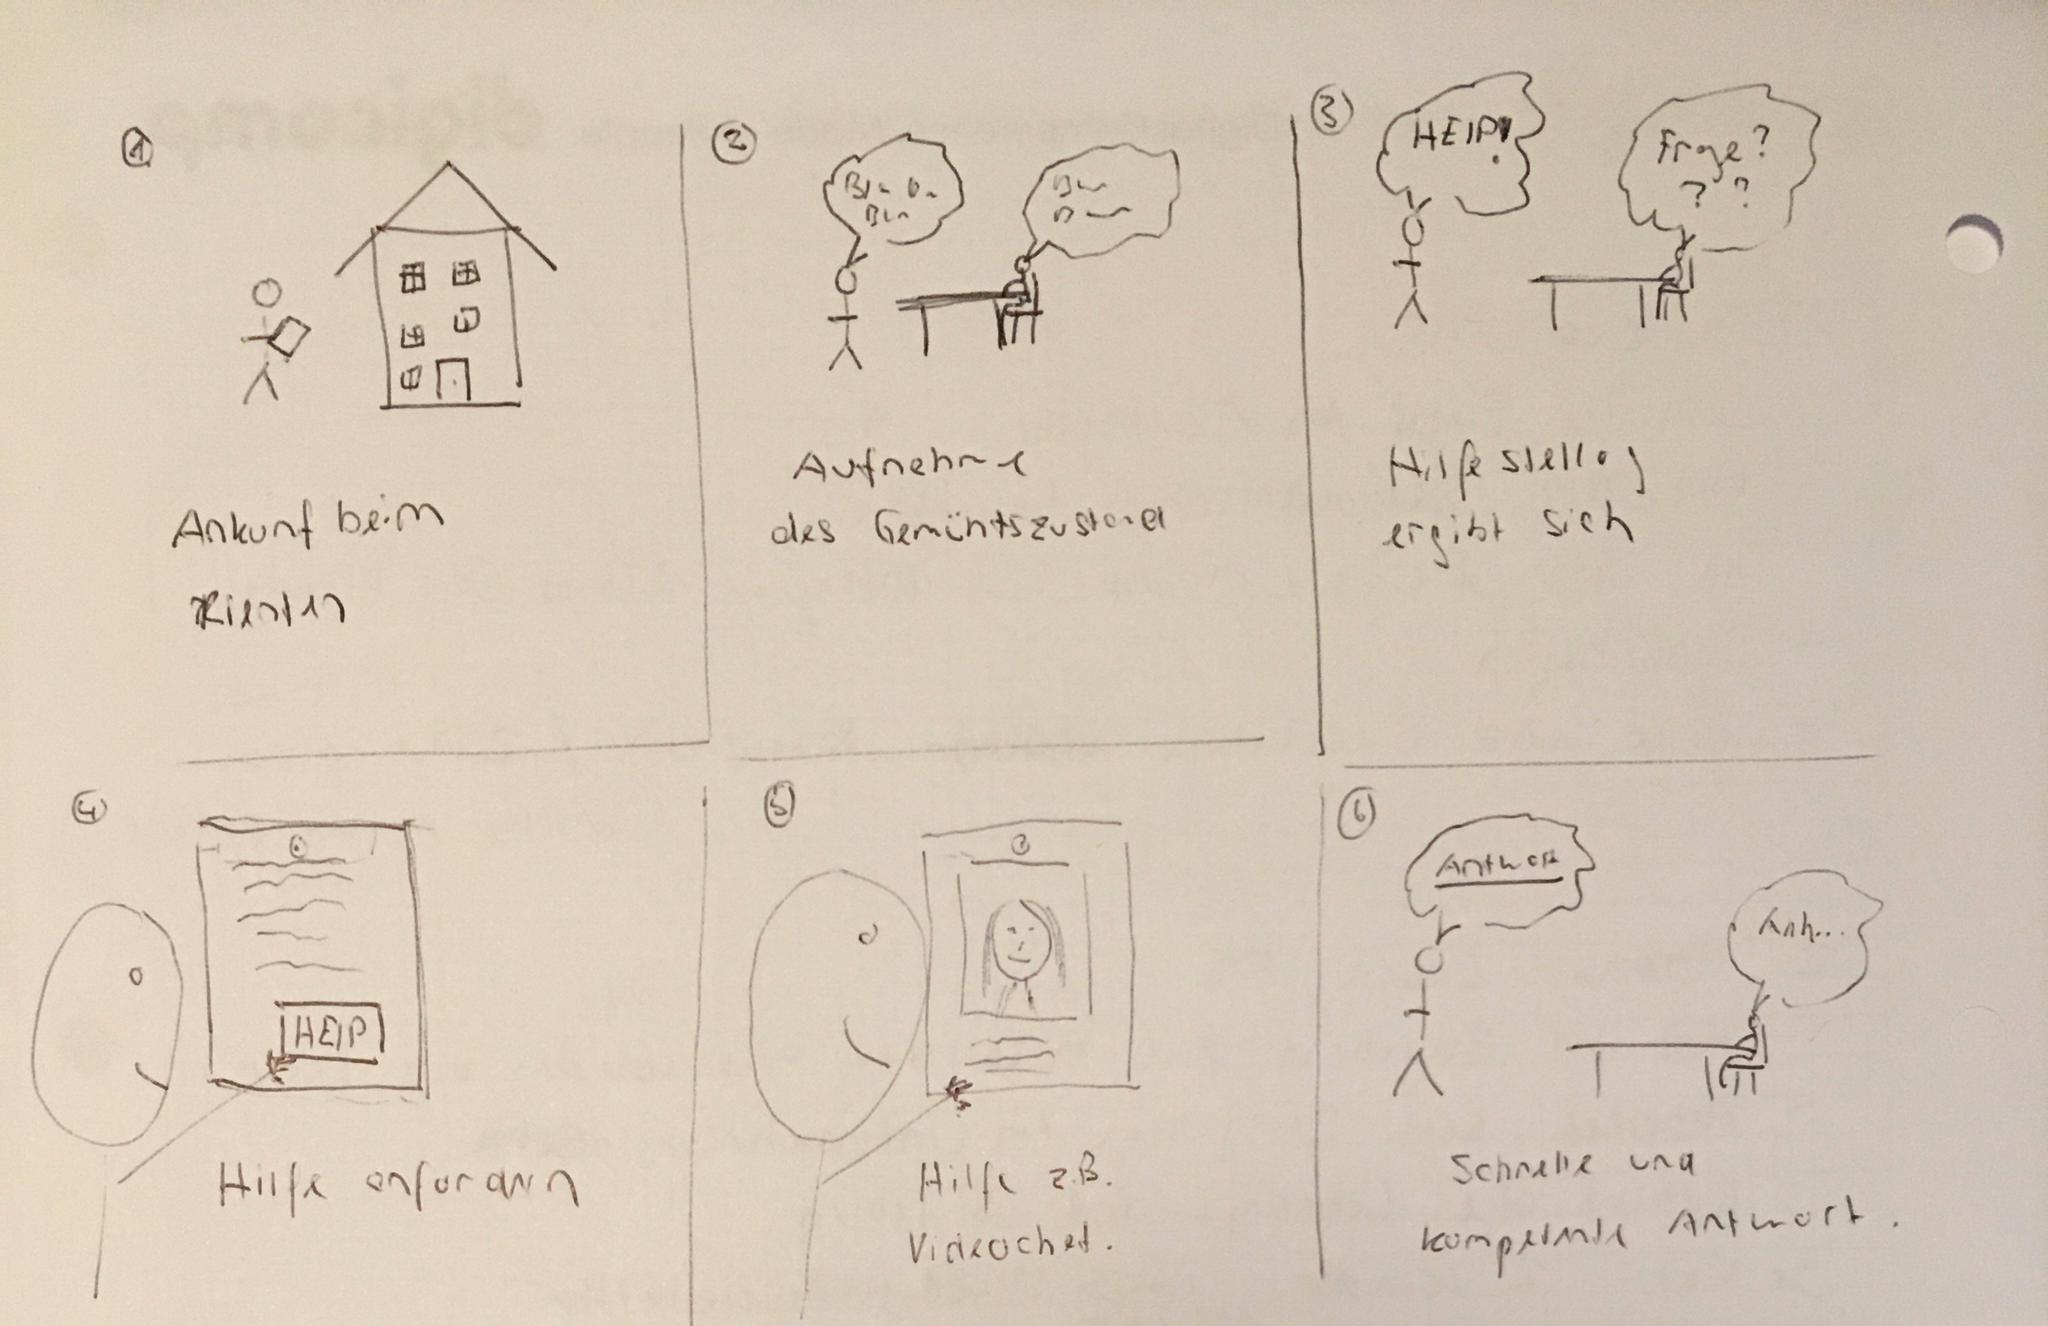 1
Ankunf beim
Klienten
2
Bla Bla
Bla
Bla
Aufnahme
des Gemühtszustand
3
HElP!
Frage?
? ?
Hilfestellung
ergibt sich
4
HElP
Hilfe anfordern
5
Hilfe z.B.
Videochat.
6
Antwort
Ahh...
Schnelle und
kompetente Antwort.
digicomp